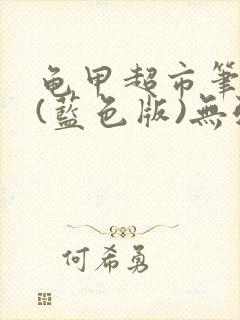 龟甲超市筆
(藍色版)無
何希勇